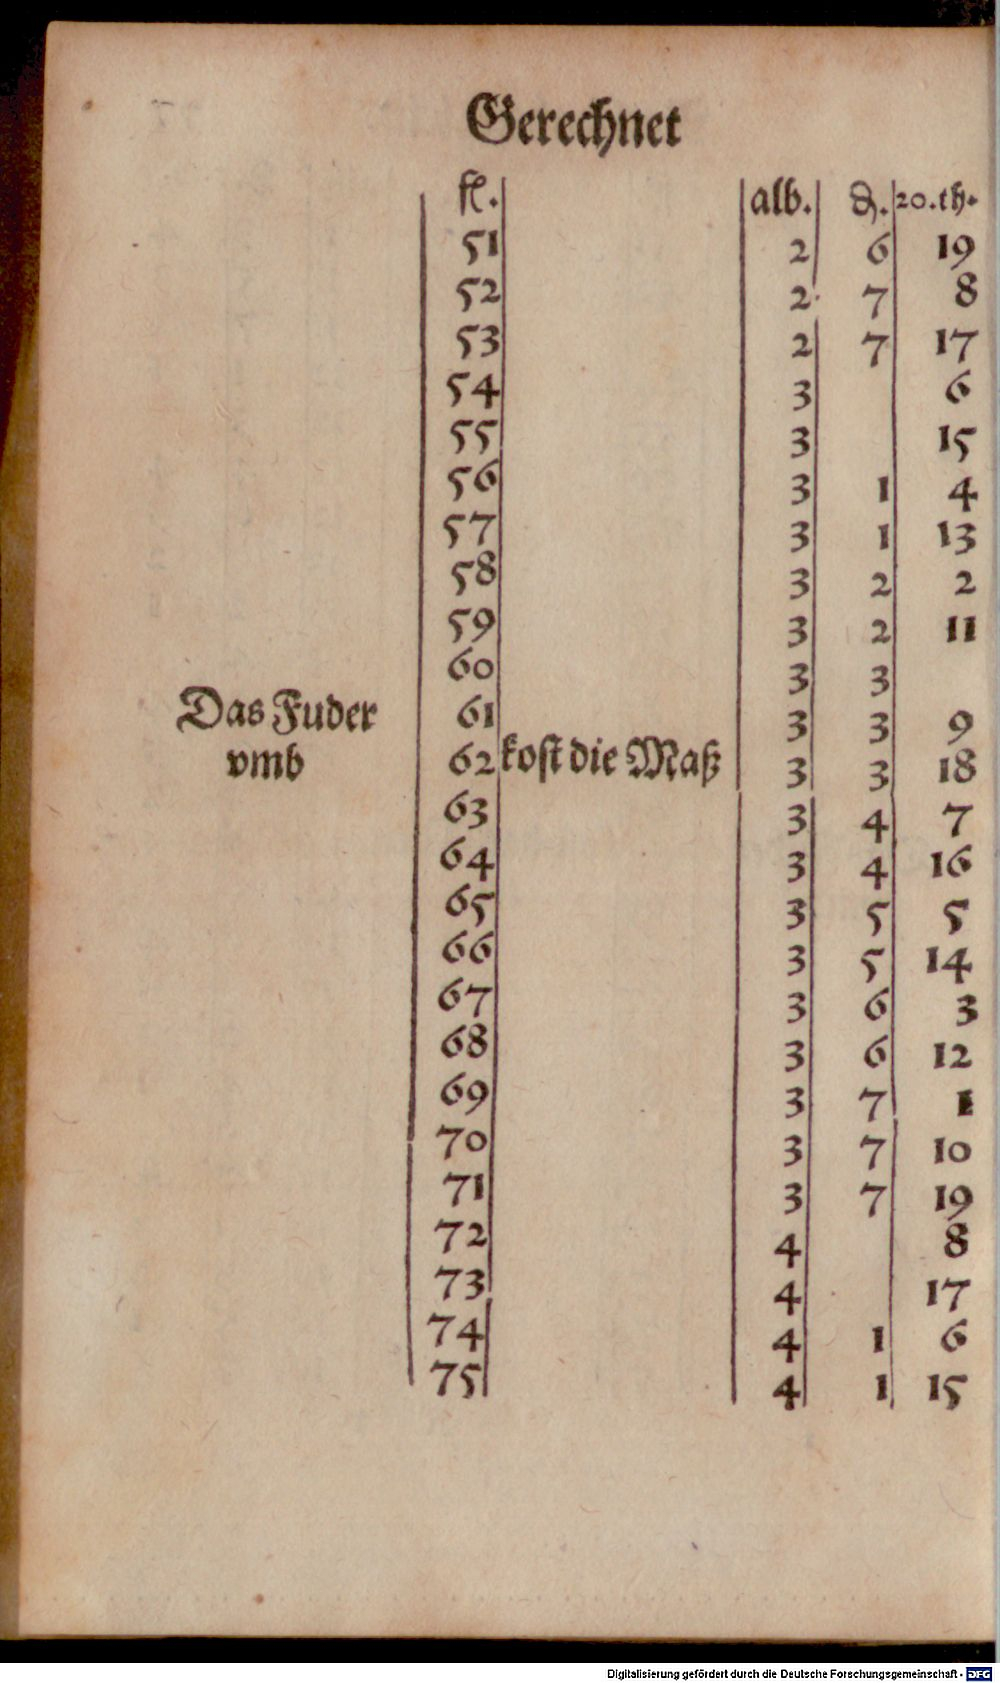 Gerechnet
fl. alb. ₰. 20.th.
51 2 6 19
52 2 7 8
53 2 7 17
54 3 6
55 3 15
56 3 1 4
57 3 1 13
58 3 2 2
59 3 2 11
60 3 3
Das Fuder 61 3 3 9
vmb 62 kost die Maß 3 3 18
63 3 4 7
64 3 4 16
65 3 5 5
66 3 5 14
67 3 6 3
68 3 6 12
69 3 7 1
70 3 7 10
71 3 7 19
72 4 8
73 4 17
74 4 1 6
75 4 1 15
Digitalisierung gefördert durch die Deutsche Forschungsgemeinschaft - DFG